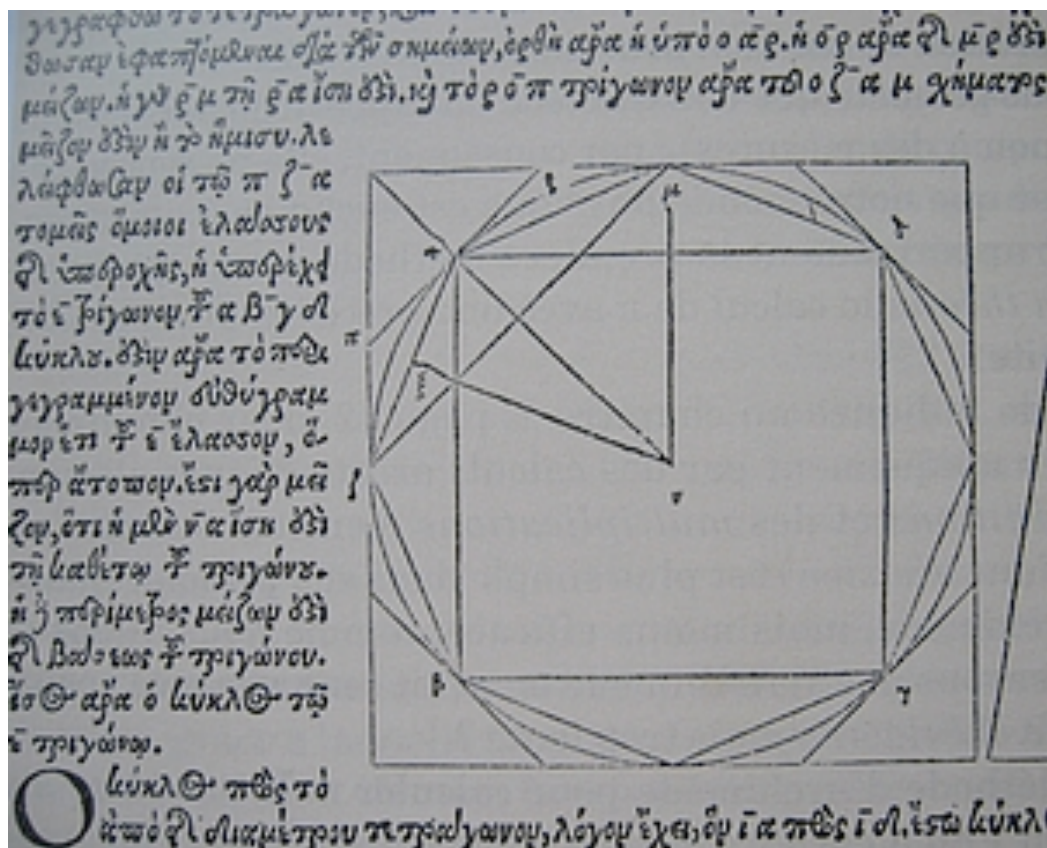 θωσαν ἐφαπτόμεναι διὰ τῶν σημείων, ὀρθὴ ἄρα ἡ ὑπὸ ο α ρ. ἡ ο ρ ἄρα τῆς μ ρ ἐστὶ
μείζων. ἡ γὰρ ρ μ τῇ ρ α ἴση ἐστὶ. καὶ τὸ ρ ο π τρίγωνον ἄρα τοῦ ο ζ α μ σχήματος
μεῖζον ἐστὶν ἢ τὸ ἥμισυ. λε
λείφθωσαν οἱ τῷ π ζ α
τομεῖς ὅμοιοι ἐλάσσους
τῆς ὑπεροχῆς, ᾗ ὑπερέχει
τὸ ε τρίγωνον, τοῦ α β γ δ
κύκλου. ἐστὶν ἄρα τὸ περι
γεγραμμένον εὐθύγραμ
μον ἔτι τοῦ ε ἔλασσον, ὅ-
περ ἄτοπον. ἔστι γὰρ μεῖ
ζον, ὅτι ἡ μὲν ν α ἴση ἐστὶ
τῇ καθέτῳ τοῦ τριγώνου.
ἡ δὲ περίμετρος μείζων ἐστὶ
τῆς βάσεως τοῦ τριγώνου.
ἴσος ἄρα ὁ κύκλος τῷ
ε τριγώνῳ.
Ο κύκλος πρὸς τὸ
ἀπὸ τῆς διαμέτρου τετράγωνον, λόγον ἔχει, ὃν ι α πρὸς ι δ. ἔστω κύκλ
μ
α
π
ξ
ν
β
γ